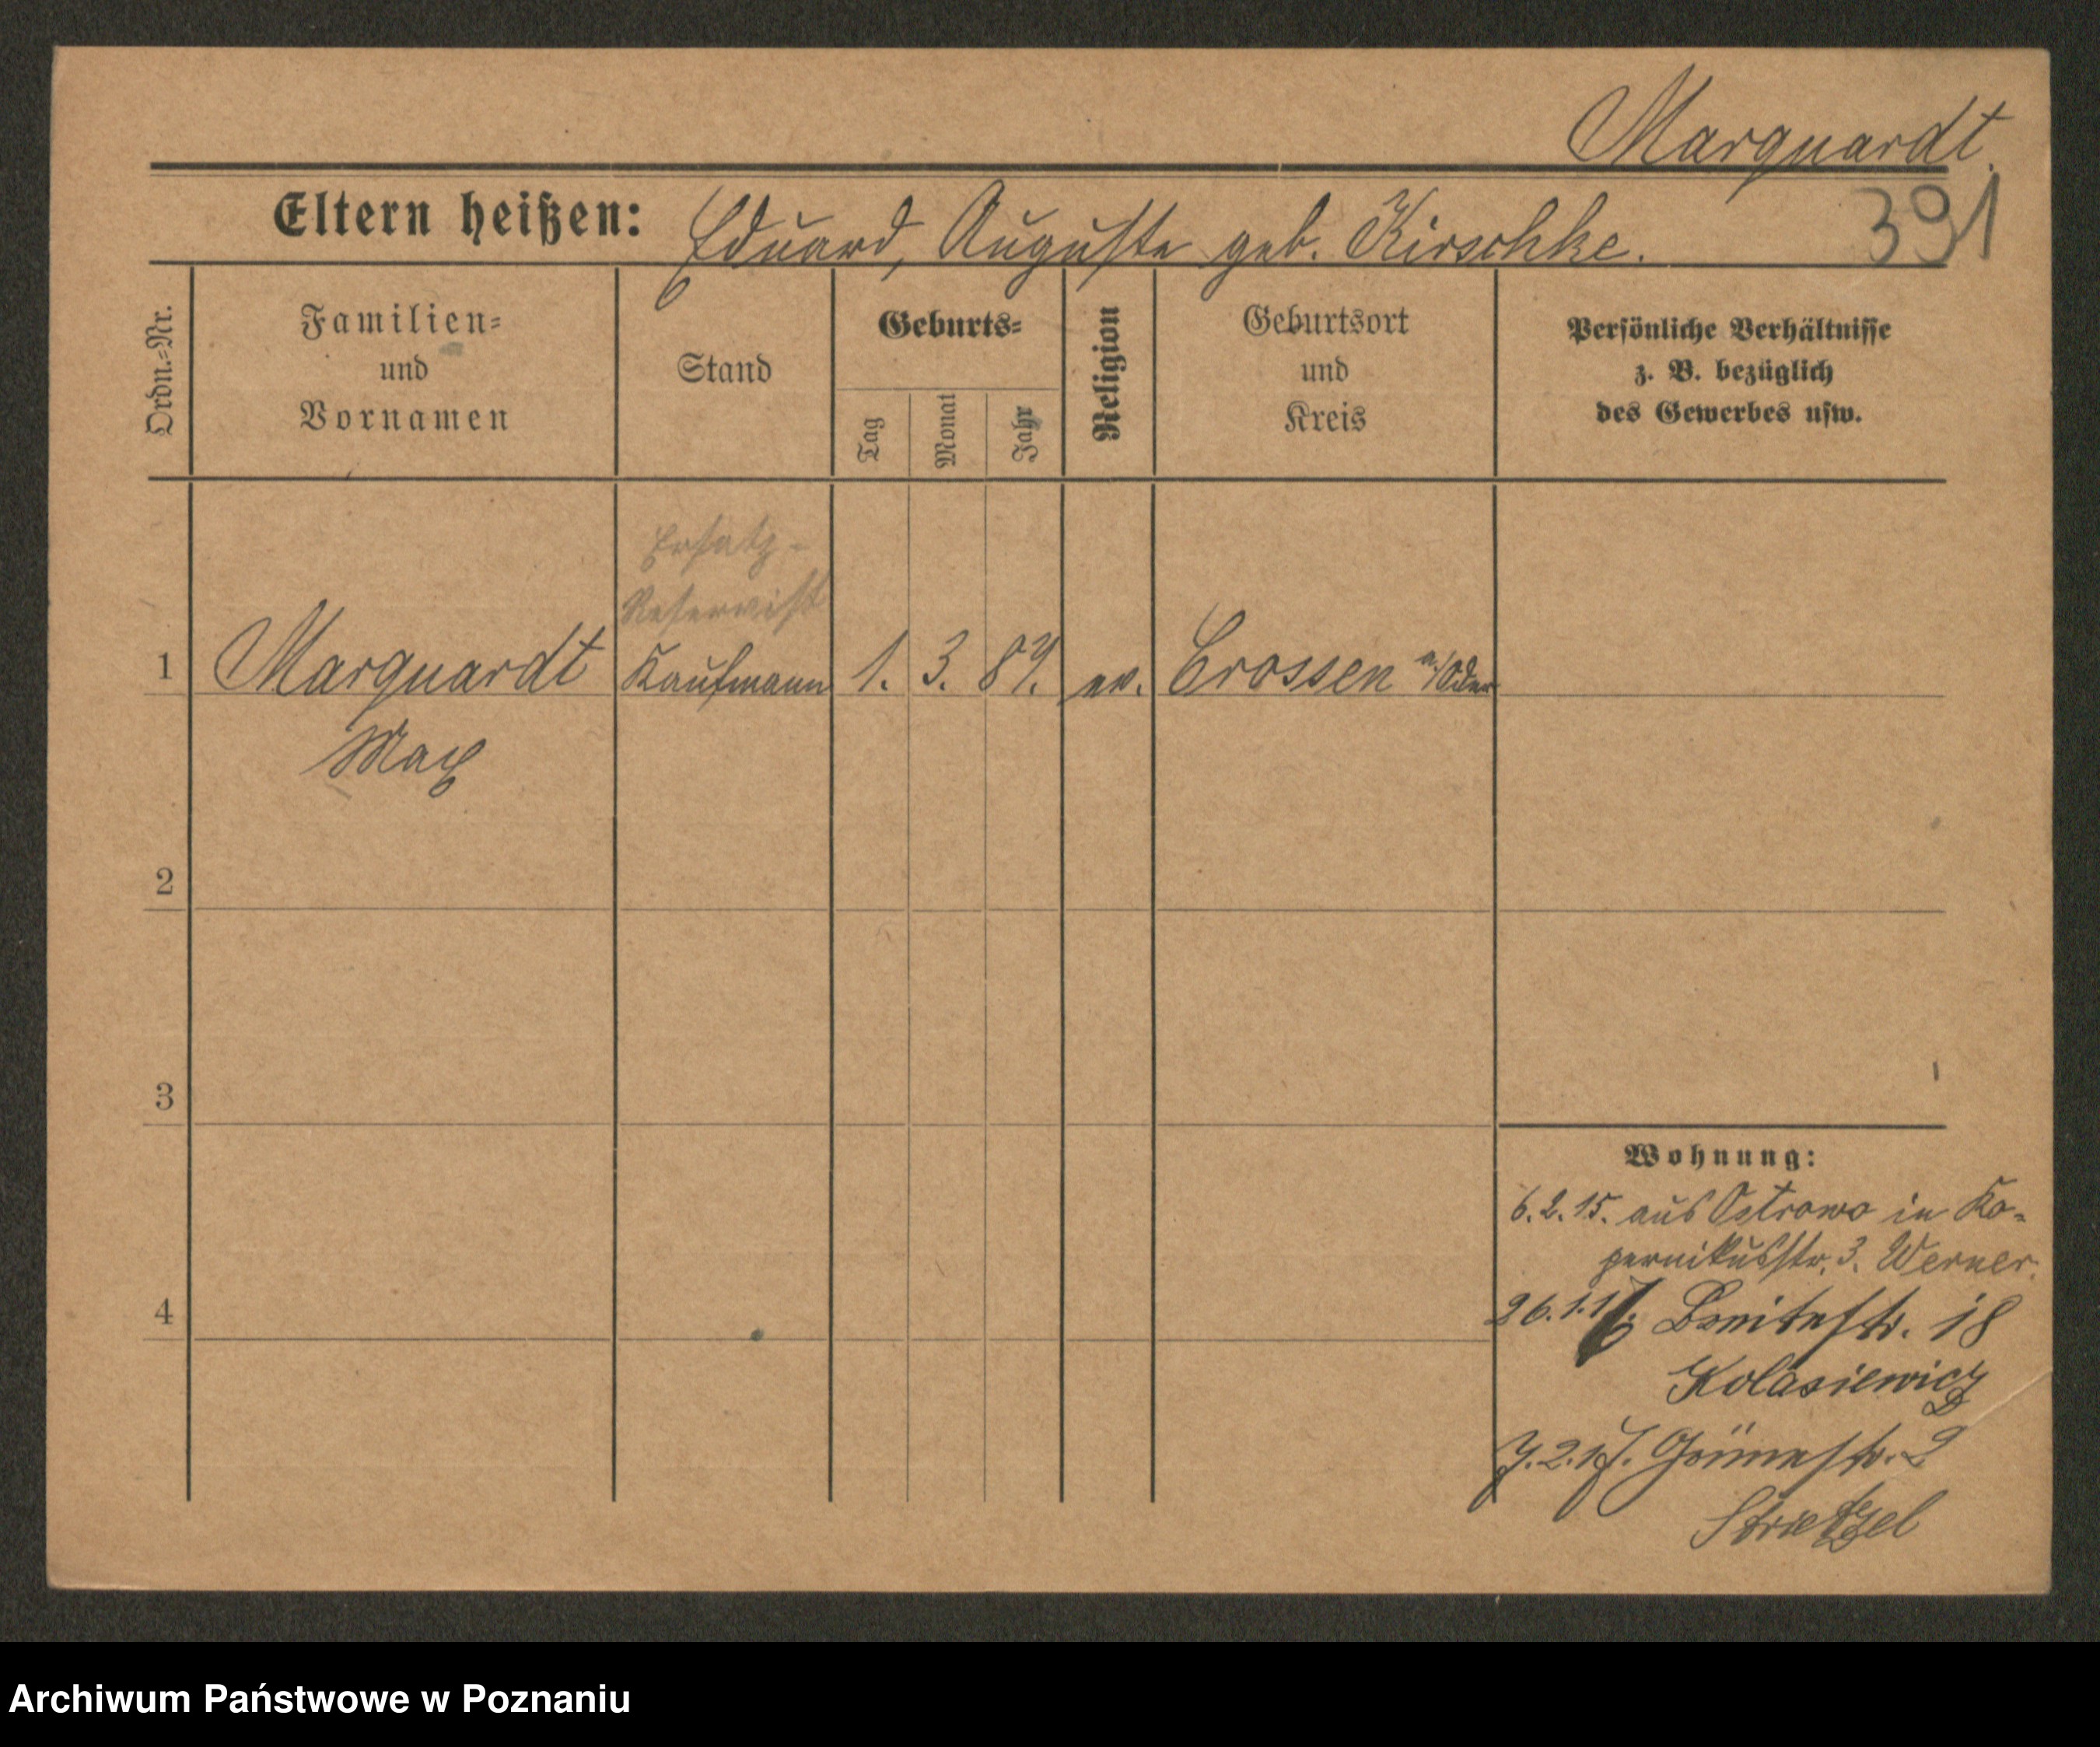 Marquardt.
Eltern heißen: Eduard, Auguste geb. Kirschke.
391
Ordn.-Nr.
Familien-
und
Vornamen
Stand
Geburts-
Tag
Monat
Jahr
Religion
Geburtsort
und
Kreis
Persönliche Verhältnisse
z. B. bezüglich
des Gewerbes usw.
Ersatz-
Reservist
1 Marquardt Kaufmann 1. 3. 87. ev. Crossen a/Oder
Max
2
3
4
Wohnung:
6.2.15. aus Ostrowo in Ko-
pernikusstr. 3. Werner.
26.1.17. Breitestr. 18
Kolasiewicz
7.2.17. Grünestr. 2
Strietzel
Archiwum Państwowe w Poznaniu